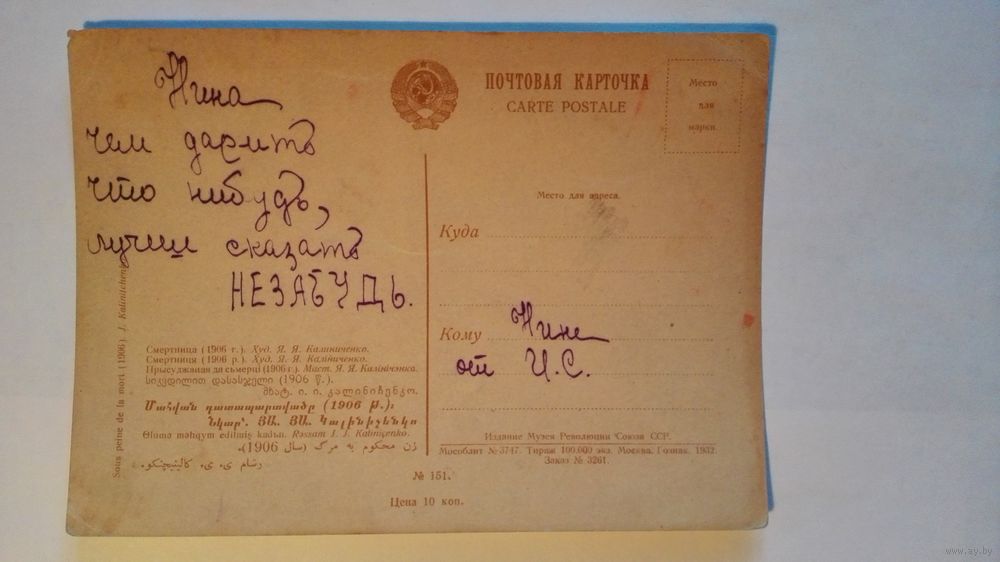 Нина
чем дарить
что нибудь,
лучше сказать
НЕЗАБУДЬ.
ПОЧТОВАЯ КАРТОЧКА
CARTE POSTALE
Место
для
марки
Место для адреса.
Куда
Кому Нине
от И.С.
Sous peine de la mort (1906). J. Kalinitchenko
Смертница (1906 г.). Худ. Я. Я. Калиниченко.
Смертниця (1906 р.). Худ. Я. Я. Калініченко.
Прысуджаная да сьмерці (1906 г.). Маст. Я. Я. Калінічэнка.
სიკვდილით დასასჯელი (1906 წ.).
მხატ. ი. ი. კალინიჩენკო.
Մահվան դատապարտվածը (1906 Թ.)։
Նկար՝. ՅԱ. ՅԱ. Կալինիչենկո
Ölumə məhqym edilmiş kadьn. Rəssam I. I. Kaliniçenko.
زن محکوم به مرگ (سال 1906)-
رسام ی. ی. کالینیچنکو.
Издание Музея Революции Союза ССР.
Мособлит № 3747. Тираж 100.000 экз. Москва. Гознак. 1932.
Заказ № 3261.
№ 151.
Цена 10 коп.
www.ay.by